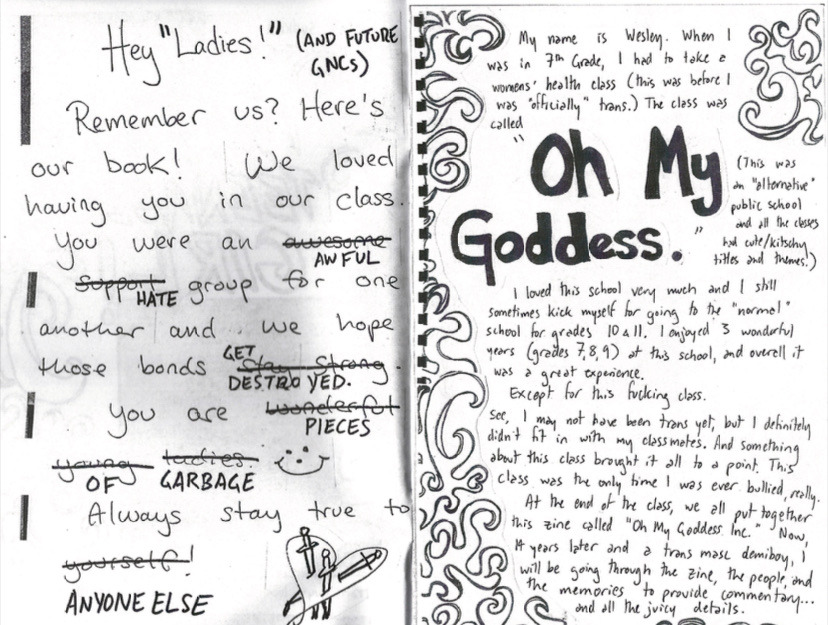 Hey "Ladies!" (AND FUTURE
GNCs)
Remember us? Here's
our book! We loved
having you in our class.
You were an awesome
AWFUL
support HATE group for one
another and we hope
those bonds GET stay strong.
DESTROYED.
you are wonderful
PIECES
young ladies.
OF GARBAGE
Always stay true to
yourself!
ANYONE ELSE
My name is Wesley. When I
was in 7th Grade, I had to take a
womens' health class (this was before I
was "officially" trans.) The class was
called
"Oh My
Goddess."
(This was
an "alternative"
public school
and all the classes
had cute/kitschy
titles and themes!)
I loved this school very much and I still
sometimes kick myself for going to the "normal"
school for grades 10 & 11. I enjoyed 3 wonderful
years (grades 7,8,9) at this school, and overall it
was a great experience.
Except for this fucking class.
See, I may not have been trans yet, but I definitely
didn't fit in with my classmates. And something
about this class brought it all to a point. This
class was the only time I was ever bullied, really.
At the end of the class, we all put together
this zine called "Oh My Goddess Inc." Now,
14 years later and a trans masc demiboy, I
will be going through the zine, the people, and
the memories to provide commentary...
and all the juicy details.